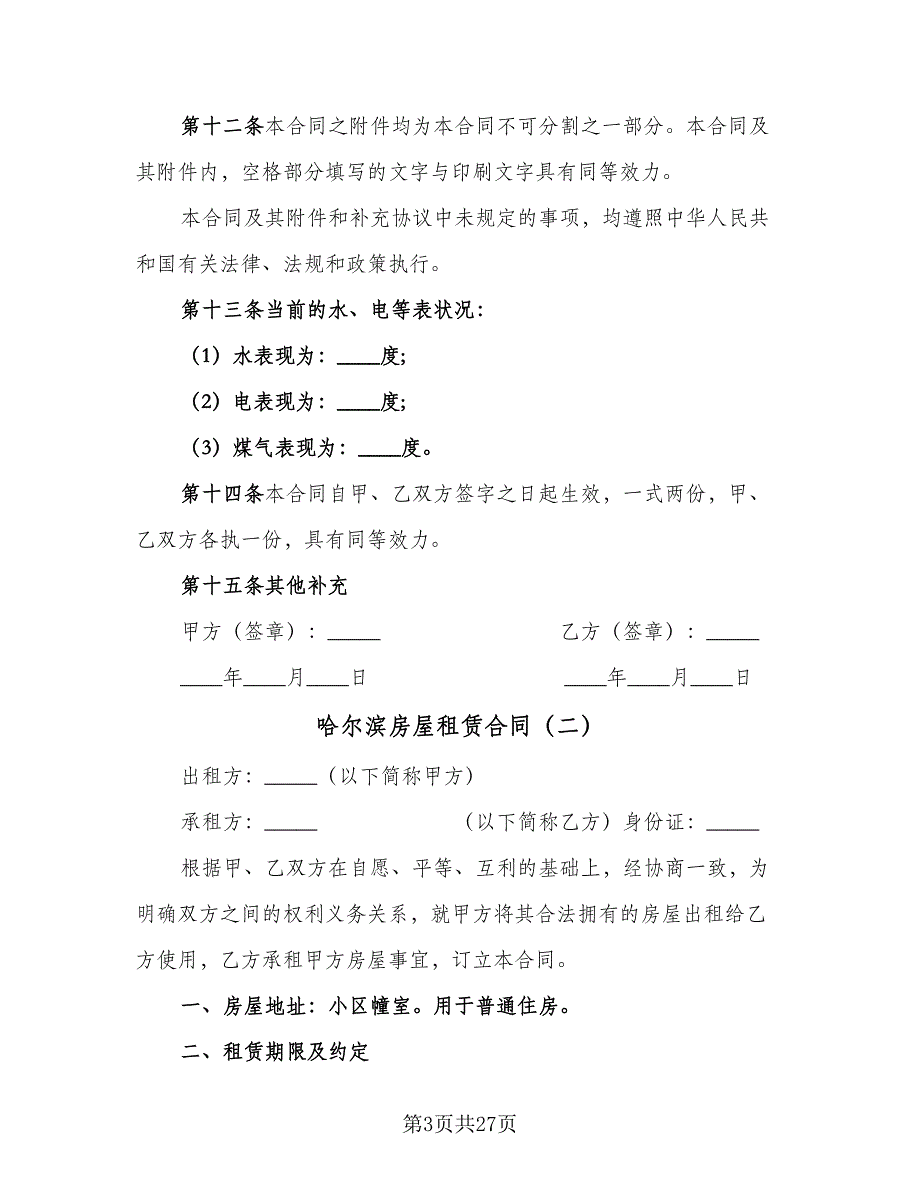 第十二条本合同之附件均为本合同不可分割之一部分。本合同及
其附件内，空格部分填写的文字与印刷文字具有同等效力。
本合同及其附件和补充协议中未规定的事项，均遵照中华人民共
和国有关法律、法规和政策执行。
第十三条当前的水、电等表状况：
（1）水表现为：____度;
（2）电表现为：____度;
（3）煤气表现为：____度。
第十四条本合同自甲、乙双方签字之日起生效，一式两份，甲、
乙双方各执一份，具有同等效力。
第十五条其他补充
甲方（签章）：_____ 乙方（签章）：_____
____年____月____日 ____年____月____日
哈尔滨房屋租赁合同（二）
出租方：_____（以下简称甲方）
承租方：_____ （以下简称乙方）身份证：_____
根据甲、乙双方在自愿、平等、互利的基础上，经协商一致，为
明确双方之间的权利义务关系，就甲方将其合法拥有的房屋出租给乙
方使用，乙方承租甲方房屋事宜，订立本合同。
一、房屋地址：小区幢室。用于普通住房。
二、租赁期限及约定
第3页共27页